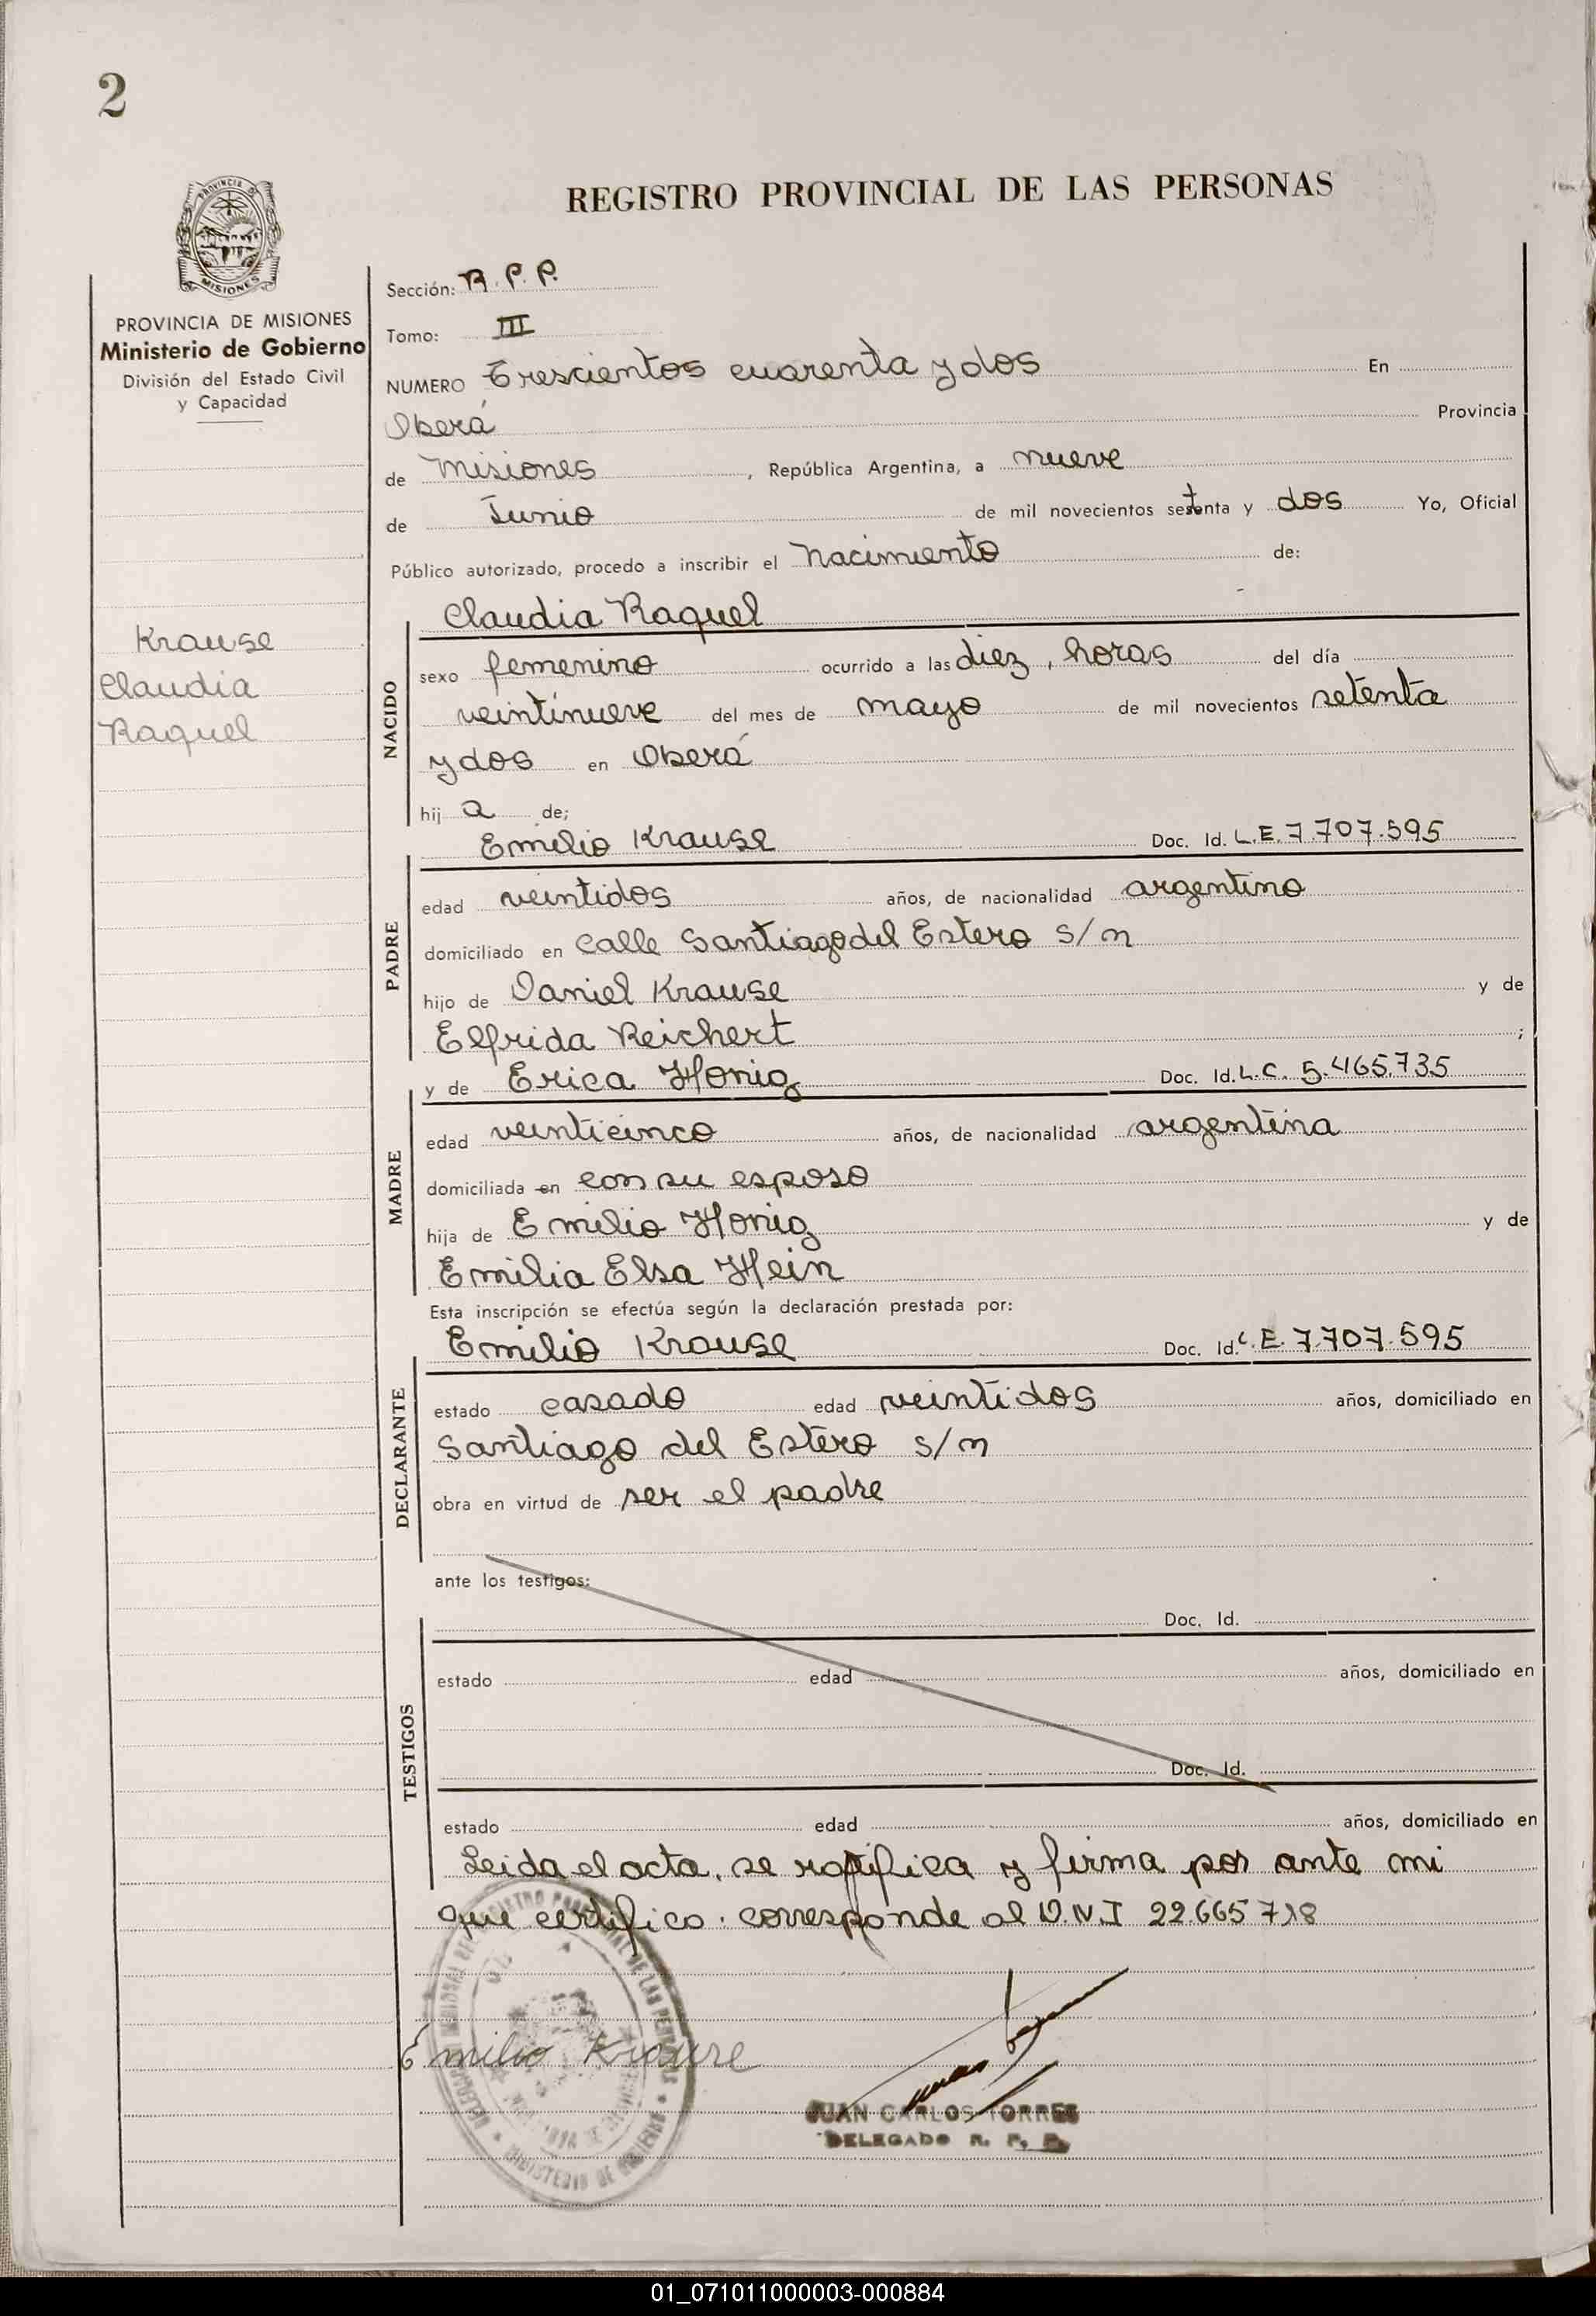 2
REGISTRO PROVINCIAL DE LAS PERSONAS
PROVINCIA DE
MISIONES
PROVINCIA DE MISIONES
Ministerio de Gobierno
División del Estado Civil
y Capacidad
Krause
Claudia
Raquel
Sección: R. P. P.
Tomo: III
NUMERO Trescientos cuarenta y dos En
Oberá Provincia
de Misiones, República Argentina, a nueve
de Junio de mil novecientos setenta y dos Yo, Oficial
Público autorizado, procedo a inscribir el Nacimiento de:
Claudia Raquel
NACIDO
sexo femenino ocurrido a las diez, horas del día
veintinueve del mes de mayo de mil novecientos setenta
y dos en Oberá
hij a de;
Emilio Krause Doc. Id. L.E. 7.707.595
PADRE
edad veintidos años, de nacionalidad argentino
domiciliado en calle Santiago del Estero s/n
hijo de Daniel Krause y de
Elfrida Reichert ;
y de Erica Honig Doc. Id. L.C. 5.465.735
MADRE
edad veinticinco años, de nacionalidad argentina
domiciliada en con su esposo
hija de Emilio Honig y de
Emilia Elsa Hein
Esta inscripción se efectúa según la declaración prestada por:
Emilio Krause Doc. Id. L.E. 7.707.595
DECLARANTE
estado casado edad veintidos años, domiciliado en
Santiago del Estero s/n
obra en virtud de ser el padre
ante los testigos:
Doc. Id.
TESTIGOS
estado edad años, domiciliado en
Doc. Id.
estado edad años, domiciliado en
Leida el acta, se ratifica y firma por ante mi
que certifico. corresponde al D.N.I 22.665.718
Emilio Krause
JUAN CARLOS TORRES
DELEGADO R. P. P.
01_071011000003-000884